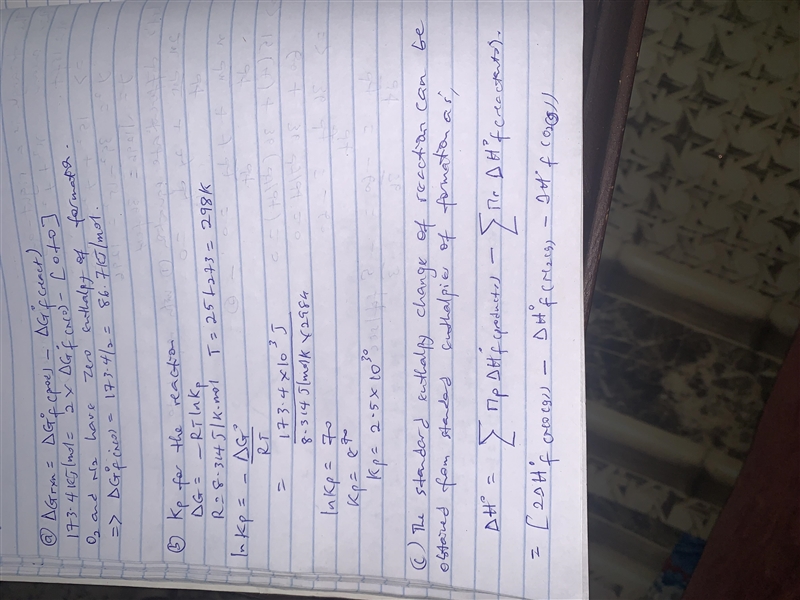 (a) ΔGrxn = ΔG°f (prod) - ΔG°f (react)
173.4 KJ/mol = 2 x ΔG°f (NO) - [0+0]
O2 and N2 have zero enthalpy of formation.
=> ΔG°f (NO) = 173.4/2 = 86.7 KJ/mol.
(b) Kp for the reaction
ΔG = -RT ln Kp
R = 8.314 J/K.mol T = 25+273 = 298K
ln Kp = - ΔG°/RT
= 173.4 x 10³ J / 8.314 J/mol K x 298K
ln Kp = 70
Kp = e^70
Kp = 2.5 x 10^30
(c) The standard enthalpy change of reaction can be
obtained from standard enthalpies of formation as,
ΔH° = ∑ np ΔH°f (products) - ∑ nr ΔH°f (reactants).
= [2ΔH°f (NO(g)) - ΔH°f (N2(g)) - ΔH°f (O2(g))